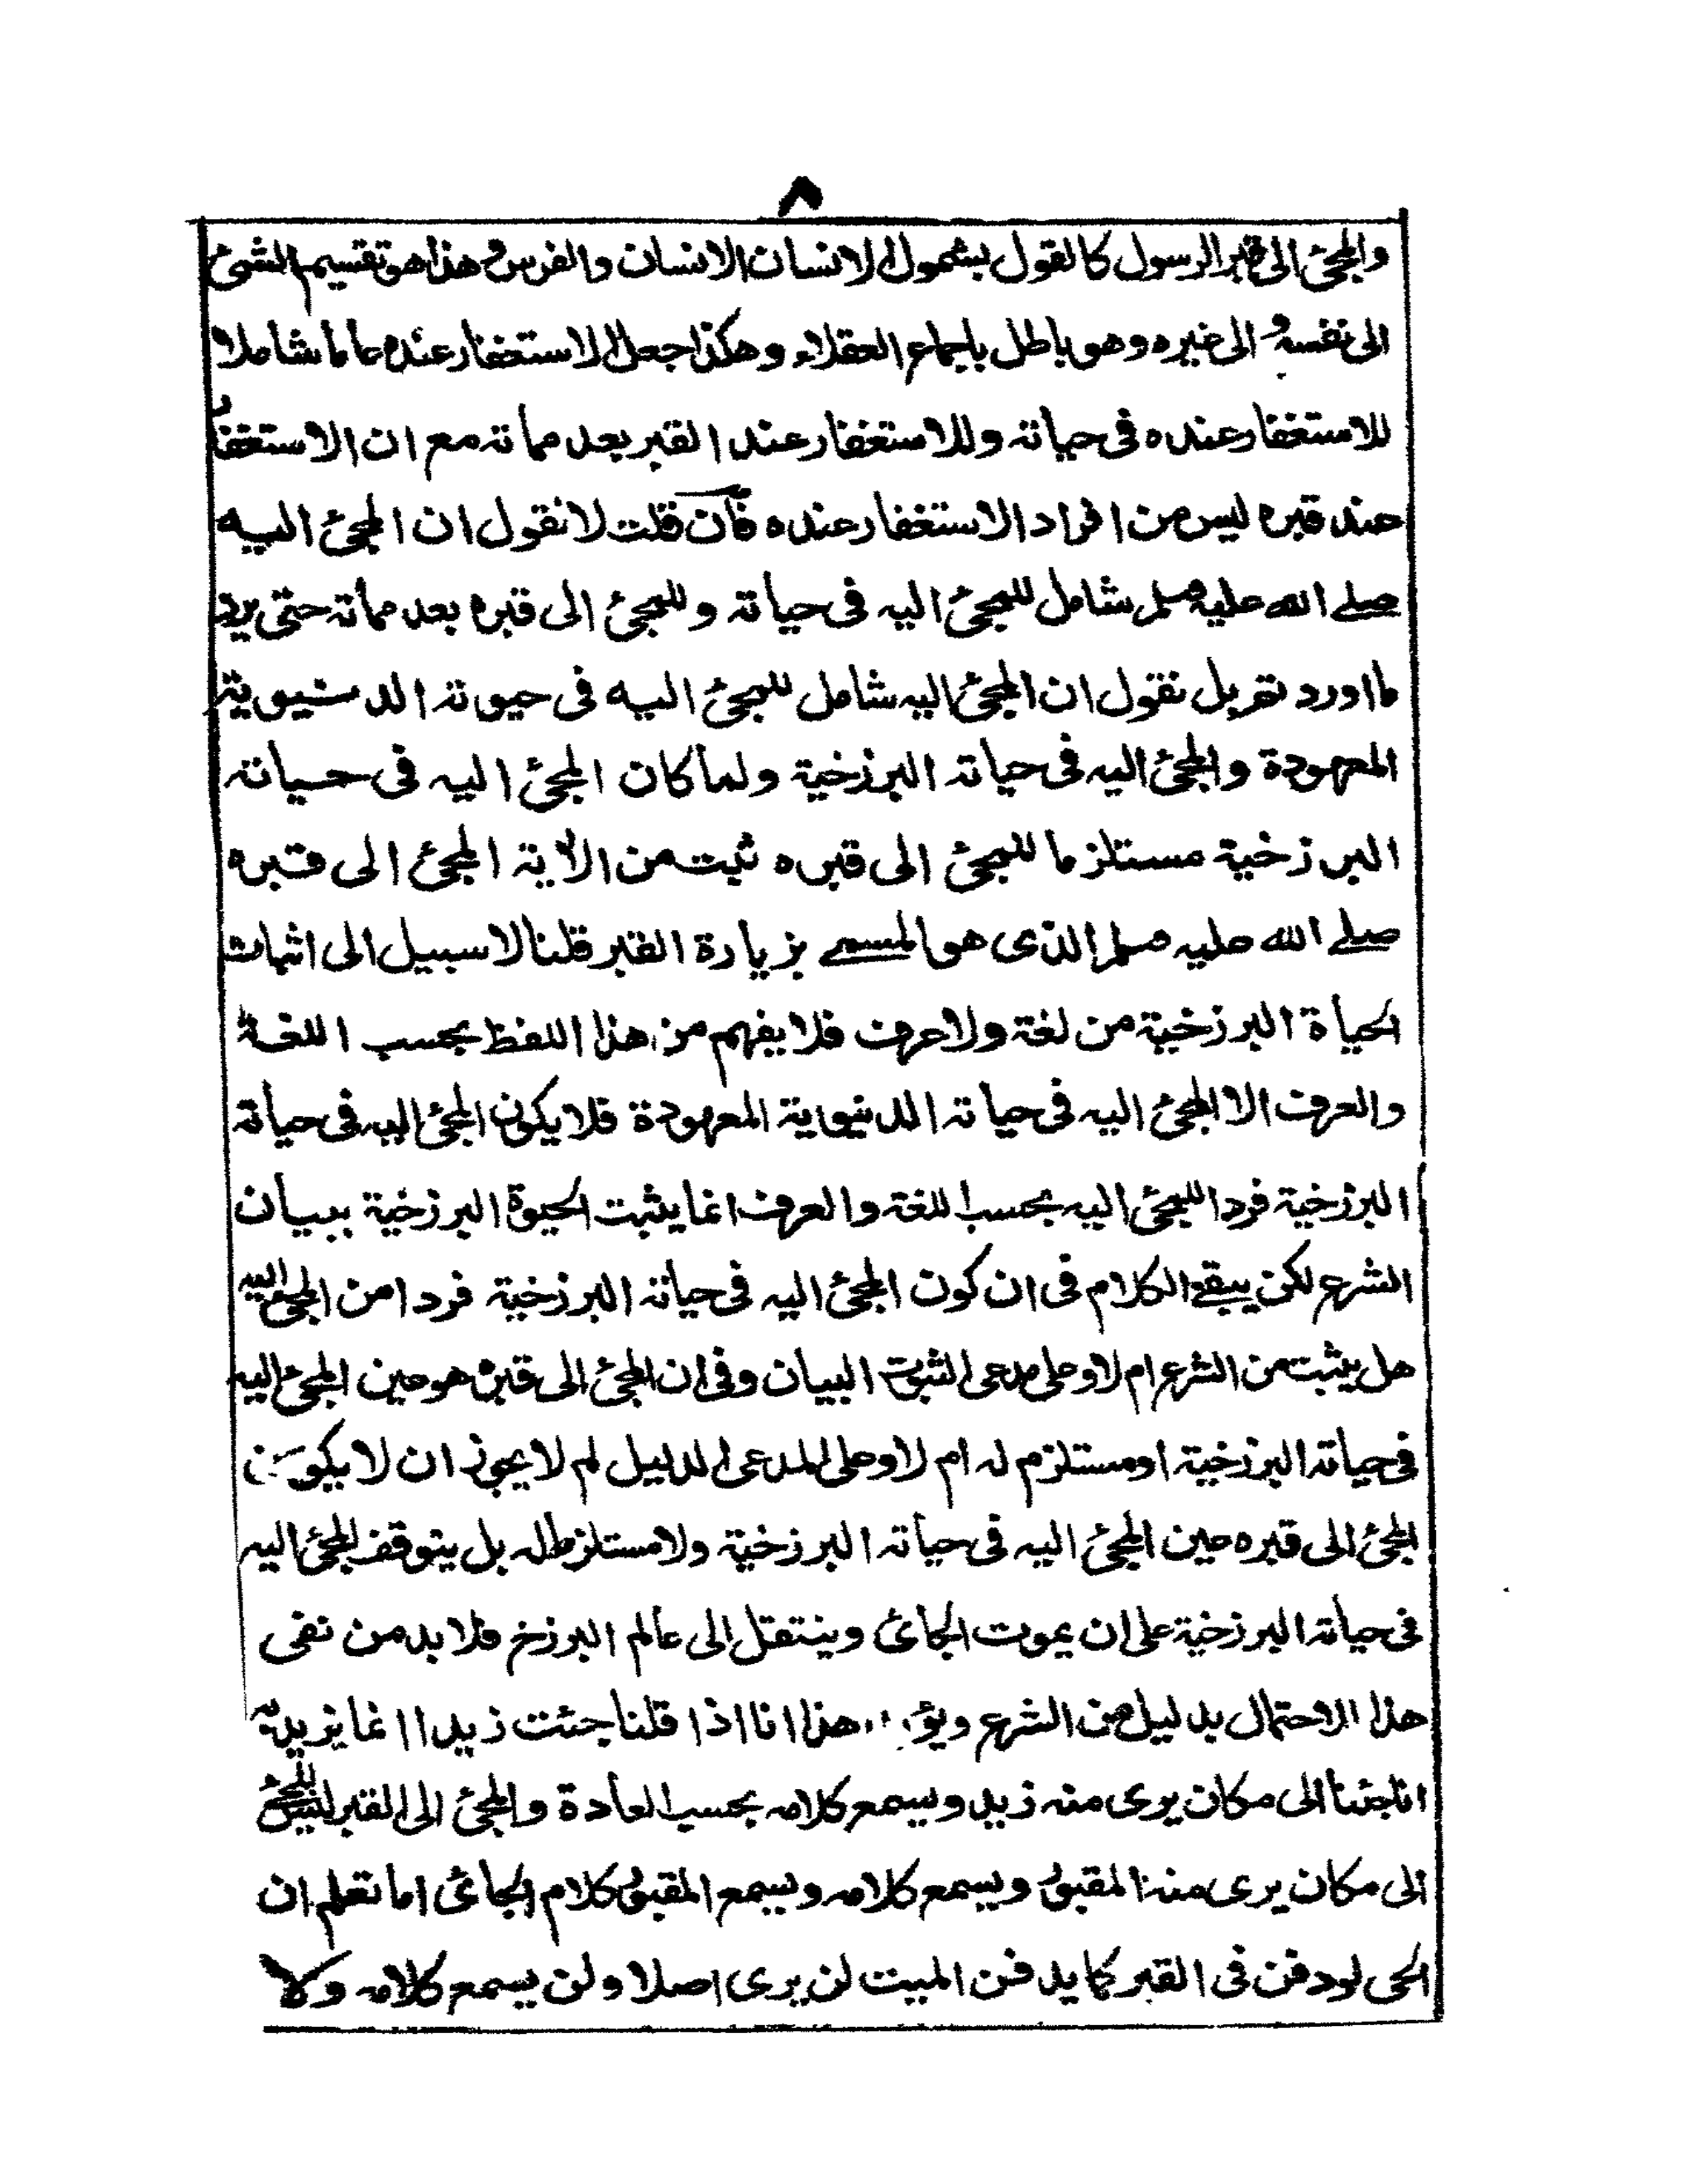 ٨
والمجئ الى قبر الرسول كالقول بشمول الانسان الانسان والفرس وهذا هو تقسيم الشئ
الى نفسه والى غيره وهو باطل باجماع العقلاء وهكذا جعل الاستغفار عنده عاما شاملا
للاستغفار عنده فى حياته وللاستغفار عند القبر بعد مماته مع ان الاستغفار
عند قبره ليس من افراد الاستغفار عنده فان قلت لا نقول ان المجئ اليه
صلے الله عليه وسلم شامل للمجئ اليه فى حياته وللمجئ الى قبره بعد مماته حتى يرد
ما اوردتم بل نقول ان المجئ اليه شامل للمجئ اليه فى حيوته الدنيوية
المعهودة والمجئ اليه فى حياته البرزخية ولما كان المجئ اليه فى حياته
البرزخية مستلزما للمجئ الى قبره ثبت من الآية المجئ الى قبره
صلے الله عليه وسلم الذى هو المسمے بزيارة القبر قلنا لا سبيل الى اثبات
الحياة البرزخية من لغة ولا عرف فلا يفهم من هذا اللفظ بحسب اللغة
والعرف الا المجئ اليه فى حياته الدنيوية المعهودة فلا يكون المجئ اليه فى حياته
البرزخية فردا للمجئ اليه بحسب اللغة والعرف انما يثبت الحيوة البرزخية ببيان
الشرع لكن يبقے الكلام فى ان كون المجئ اليه فى حياته البرزخية فردا من المجئ اليه
هل يثبت من الشرع ام لا وعلى مدعى الثبوت البيان وفى ان المجئ الى قبره هو عين المجئ اليه
فى حياته البرزخية او مستلزم له ام لا وعلى المدعى الدليل لم لا يجوز ان لا يكون
المجئ الى قبره عين المجئ اليه فى حياته البرزخية ولا مستلزما له بل يتوقف المجئ اليه
فى حياته البرزخية على ان يموت الجائ وينتقل الى عالم البرزخ فلا بد من نفى
هذا الاحتمال بدليل من الشرع هذا انا اذا قلنا جئت زيدا انما نريد به
انا جئنا الى مكان يرى منه زيد ويسمع كلامه بحسب العادة والمجئ الى القبر ليس للمجئ
الى مكان يرى منه المقبور ويسمع كلامه ويسمع المقبور كلام الجائ اما تعلم ان
الحى لو دفن فى القبر كما يدفن الميت لن يرى اصلا ولن يسمع كلامه ولا